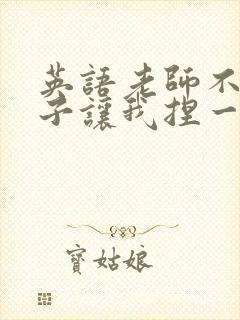 英語老師不
子讓我捏一
寶姑娘